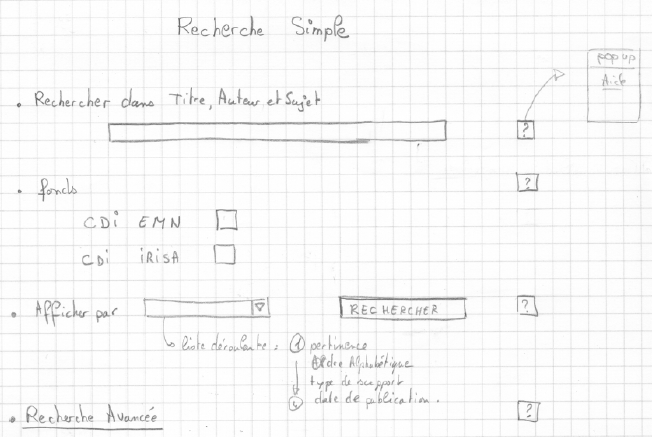 Recherche Simple
pop up
Aide
• Rechercher dans Titre, Auteur et Sujet
?
• fonds
?
CDi EMN
CDi iRiSA
• Afficher par
RECHERCHER
?
liste déroulante : 1 pertinence
Ordre Alphabétique
type de support
4 date de publication.
• Recherche Avancée
?